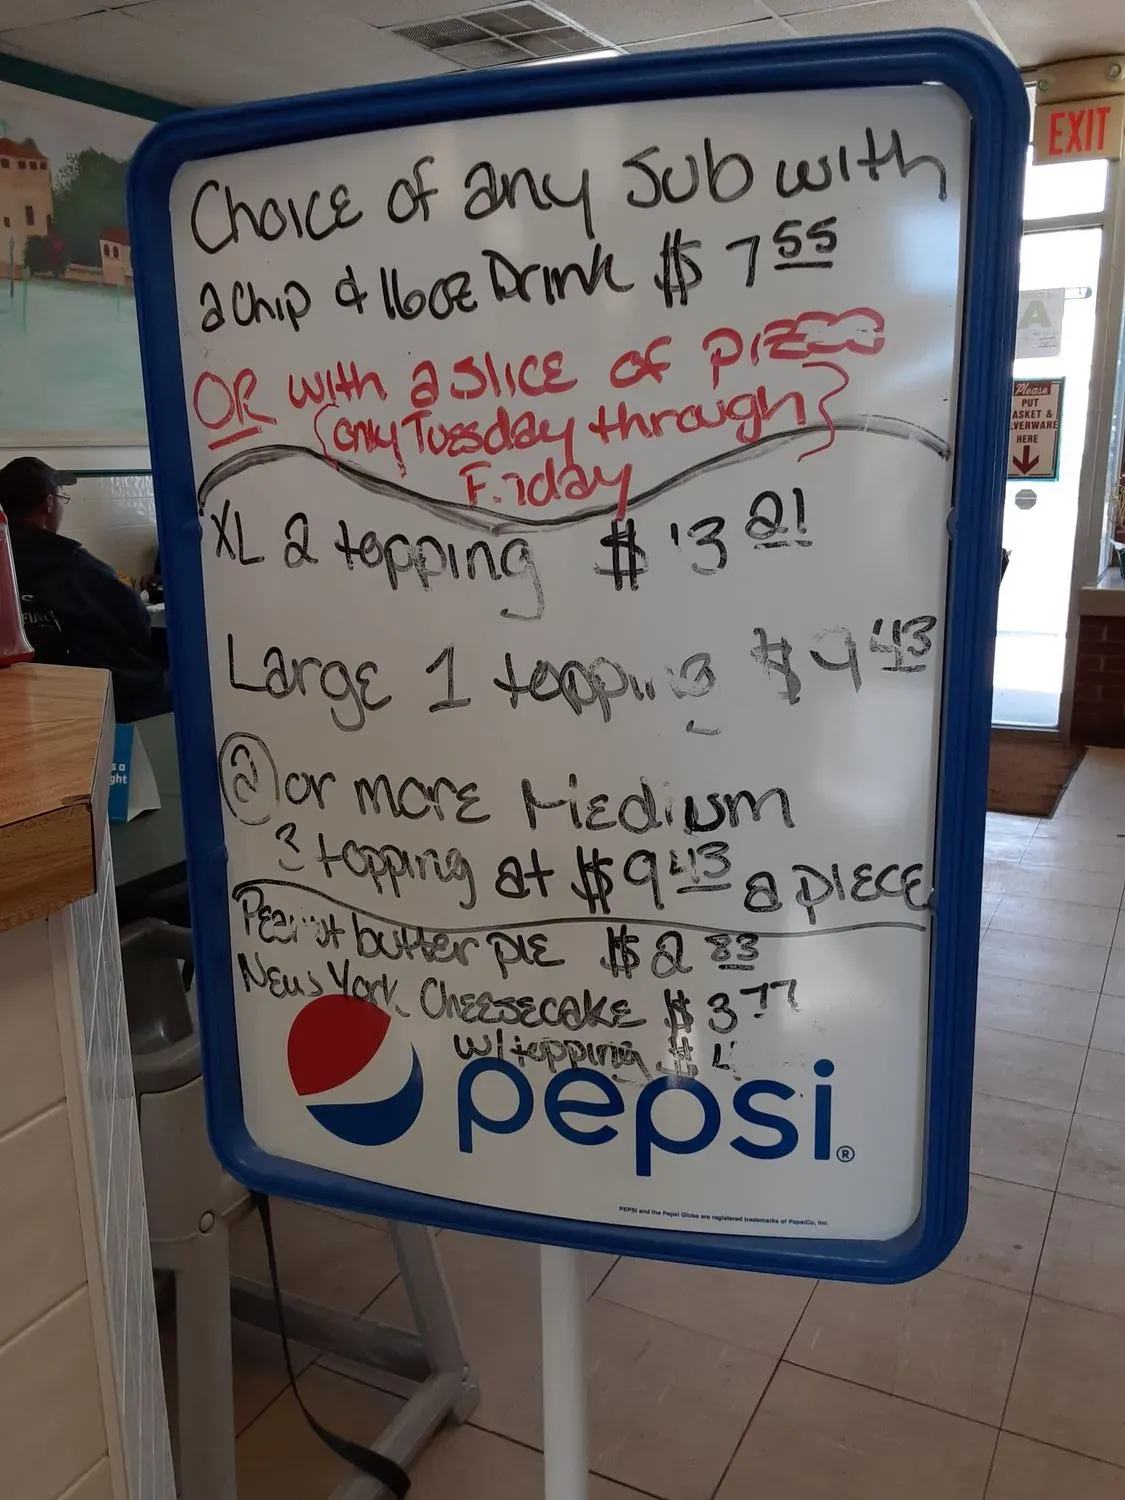 Choice of any Sub with
a chip & 16oz Drink $7.55
OR with a slice of pizza
(only Tuesday through)
Friday
XL 2 topping $13.21
Large 1 topping $9.43
2 or more Medium
3 topping at $9.43 a piece
Peanut butter pie $2.83
New York Cheesecake $3.77
w/topping $4
pepsi®
PEPSI and the Pepsi Globe are registered trademarks of PepsiCo, Inc.
EXIT
A
Please
PUT
ASKET &
LVERWARE
HERE
s a
ght